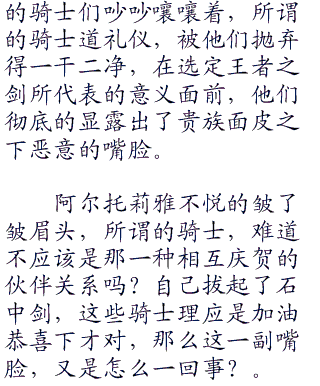 的骑士们吵吵嚷嚷着，所谓
的骑士道礼仪，被他们抛弃
得一干二净，在选定王者之
剑所代表的意义面前，他们
彻底的显露出了贵族面皮之
下恶意的嘴脸。
阿尔托莉雅不悦的皱了
皱眉头，所谓的骑士，难道
不应该是那一种相互庆贺的
伙伴关系吗？自己拔起了石
中剑，这些骑士理应是加油
恭喜下才对，那么这一副嘴
脸，又是怎么一回事？。